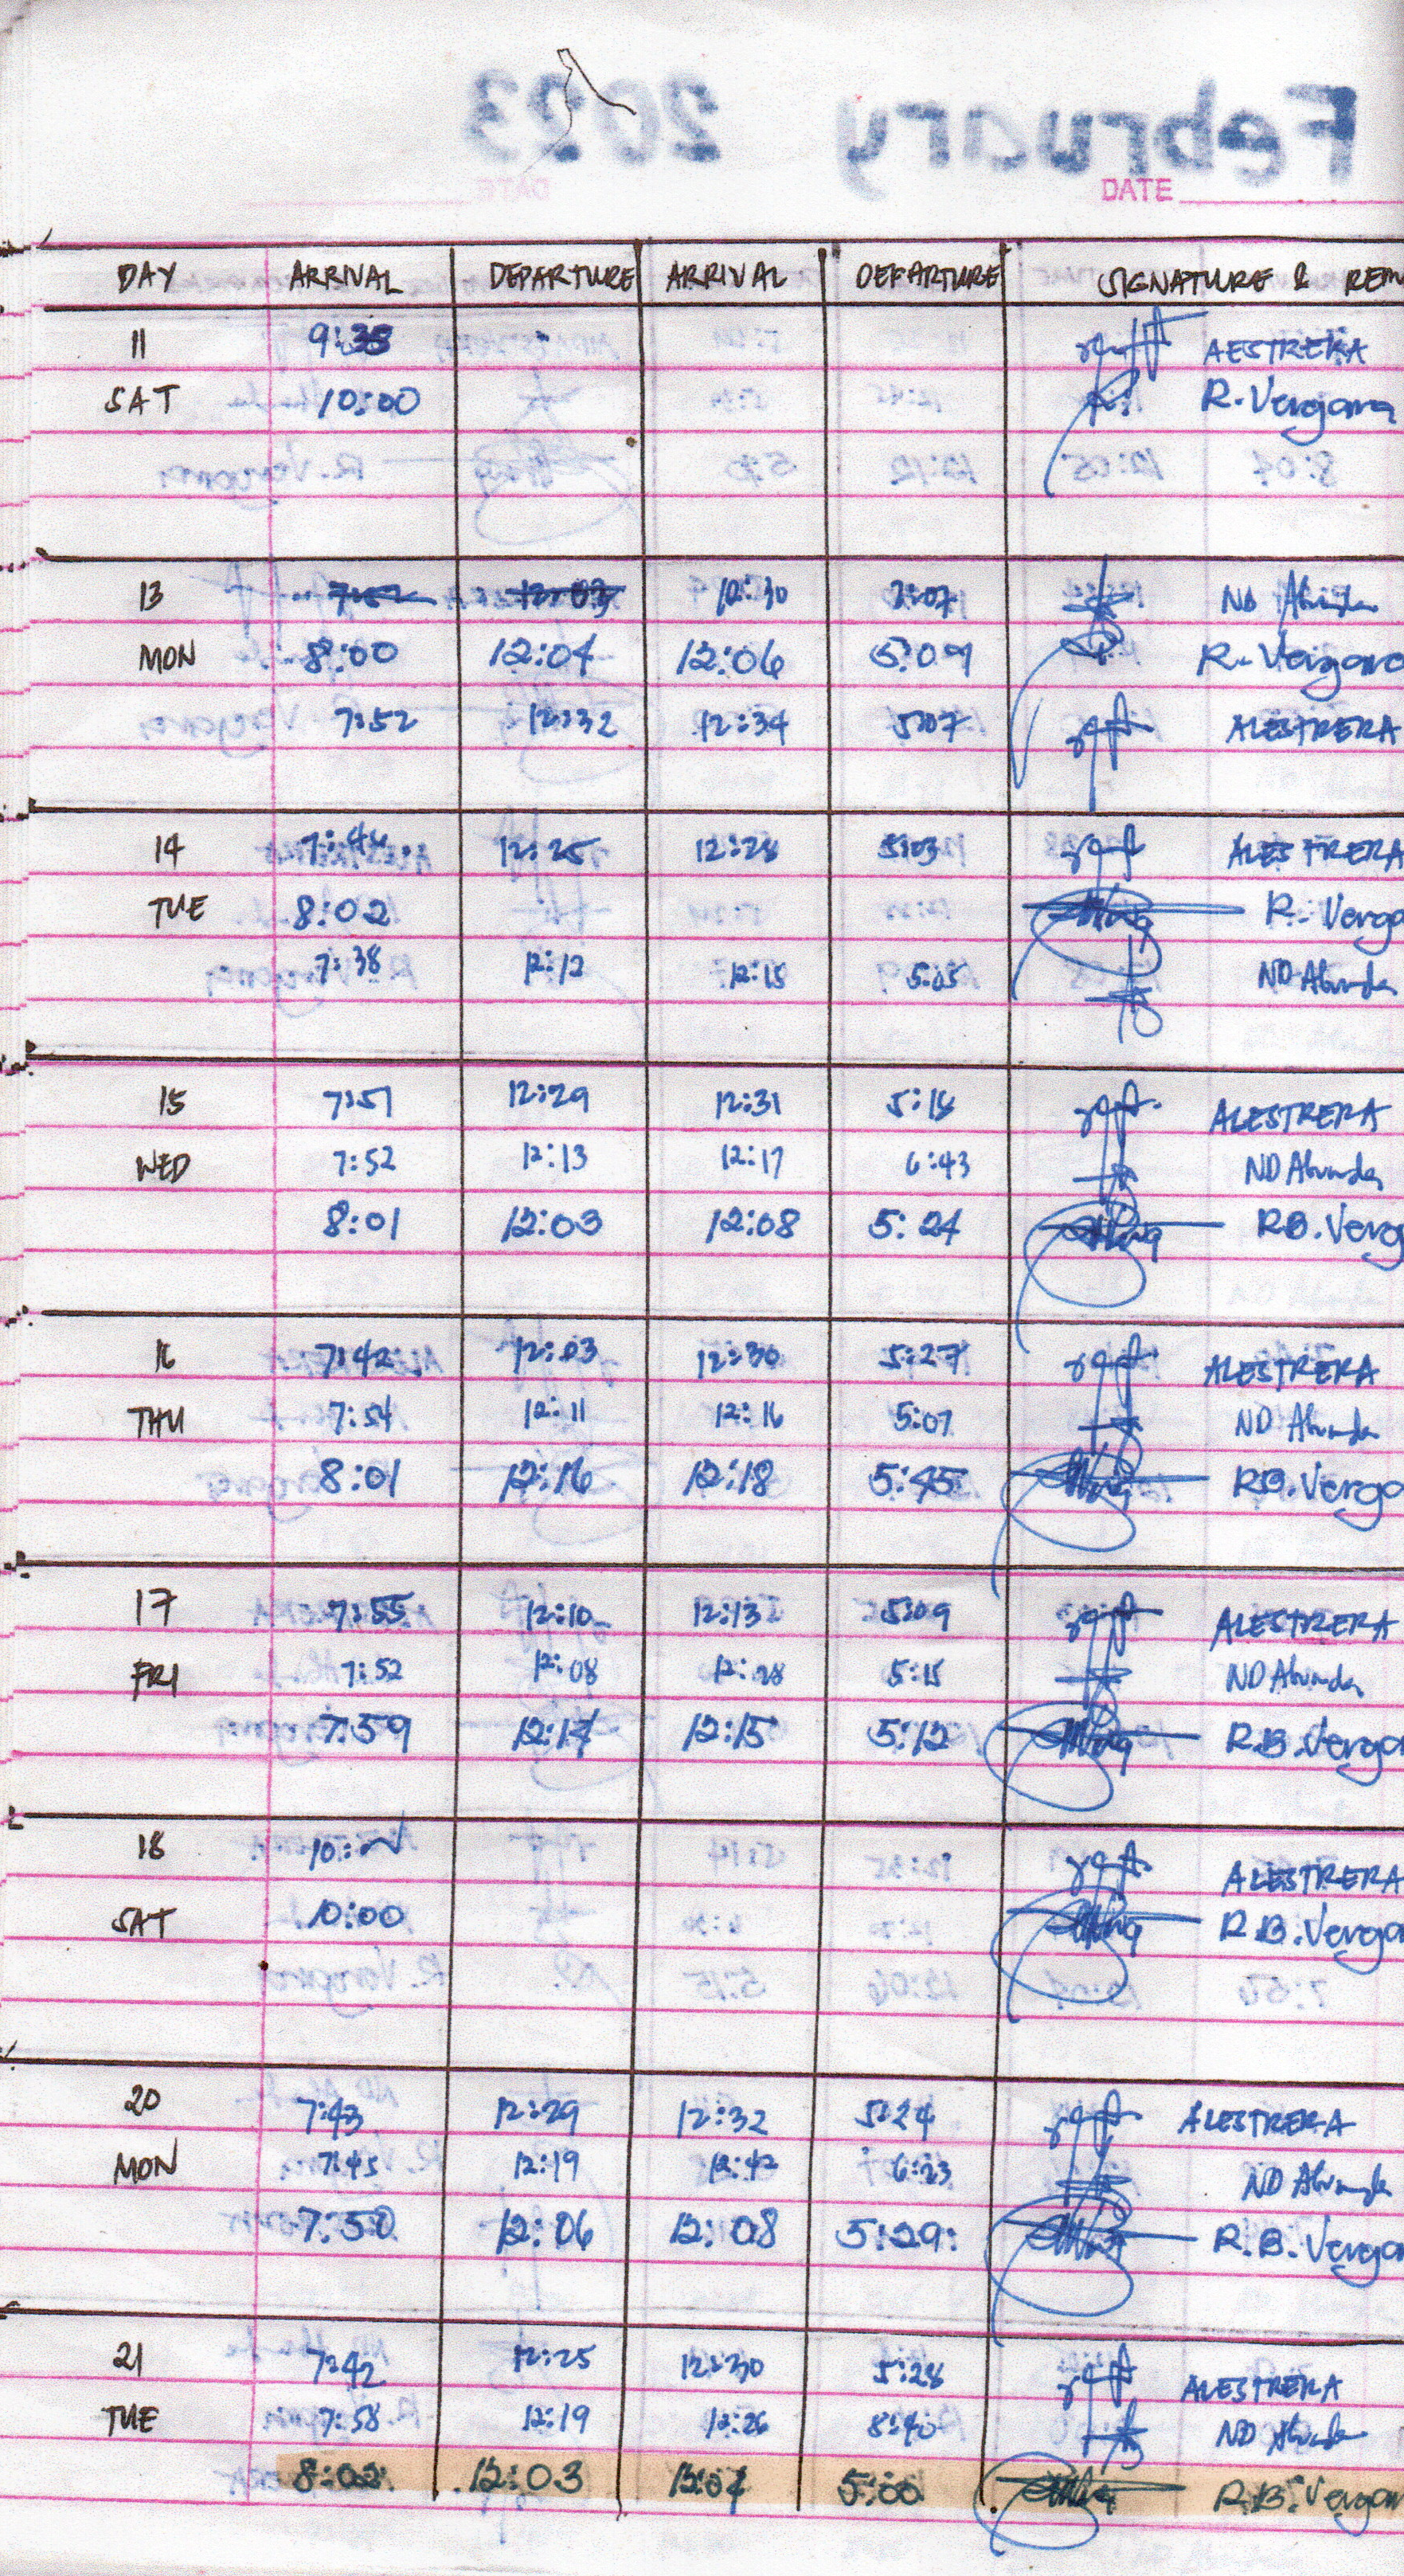 February 2023
DATE
DAY ARRIVAL DEPARTURE ARRIVAL DEPARTURE SIGNATURE & REM
11 9:35 AESTRERA
SAT 10:00 R. Vergara
13 7:52 12:03 12:30 ND Abunda
MON 8:00 12:04 12:06 5:09 R. Vergara
7:52 12:32 12:34 5:07 ALESTRERA
14 7:44 12:25 12:28 5:03 ALESTRERA
TUE 8:02 R. Verga
7:38 12:12 12:15 5:05 ND Abunda
15 7:51 12:29 12:31 5:18 ALESTRERA
WED 7:52 12:13 12:17 6:43 ND Abunda
8:01 12:03 12:08 5:24 RB. Verg
16 7:42 12:03 12:30 5:27 ALESTRERA
THU 7:54 12:11 12:16 5:07 ND Abunda
8:01 12:16 12:18 5:45 RB. Verga
17 7:55 12:10 12:13 5:09 ALESTRERA
FRI 7:52 12:08 12:28 5:15 ND Abunda
7:59 12:14 12:15 5:12 R.B. Vergar
18 ALESTRERA
SAT 10:00 R.B. Vergar
20 7:43 12:29 12:32 5:24 ALESTRERA
MON 7:45 12:19 12:42 6:23 ND Abunda
7:50 12:06 12:08 5:29 R.B. Vergar
21 7:42 12:25 12:30 5:28 ALESTRERA
TUE 7:58 12:19 12:26 8:40 ND Abunda
8:02 12:03 12:04 5:00 R.B. Vergar